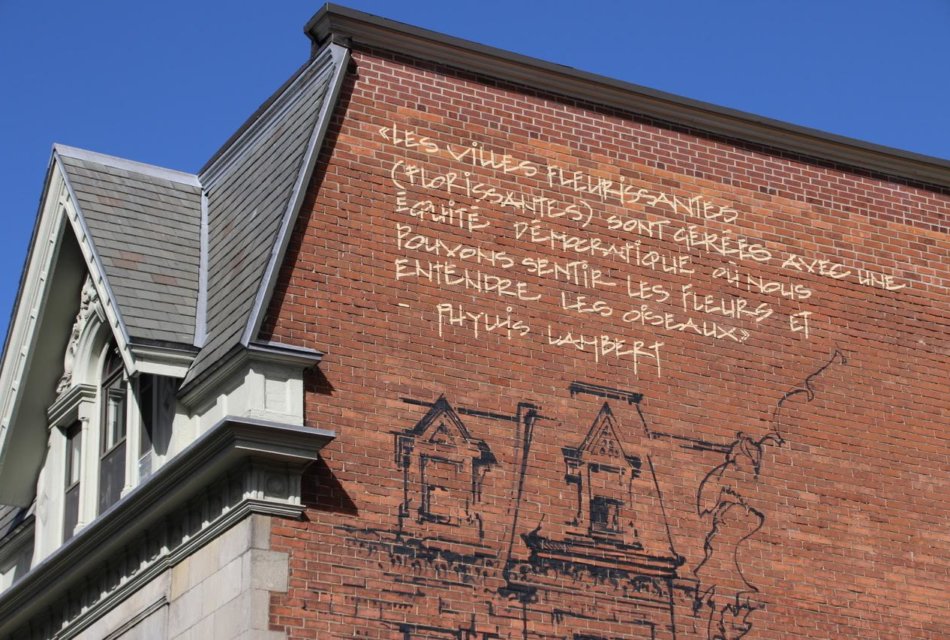 «LES VILLES FLEURISSANTES
(FLORISSANTES) SONT GÉRÉES AVEC UNE
ÉQUITÉ DÉMOCRATIQUE OÙ NOUS
POUVONS SENTIR LES FLEURS ET
ENTENDRE LES OISEAUX»
- PHYLLIS LAMBERT